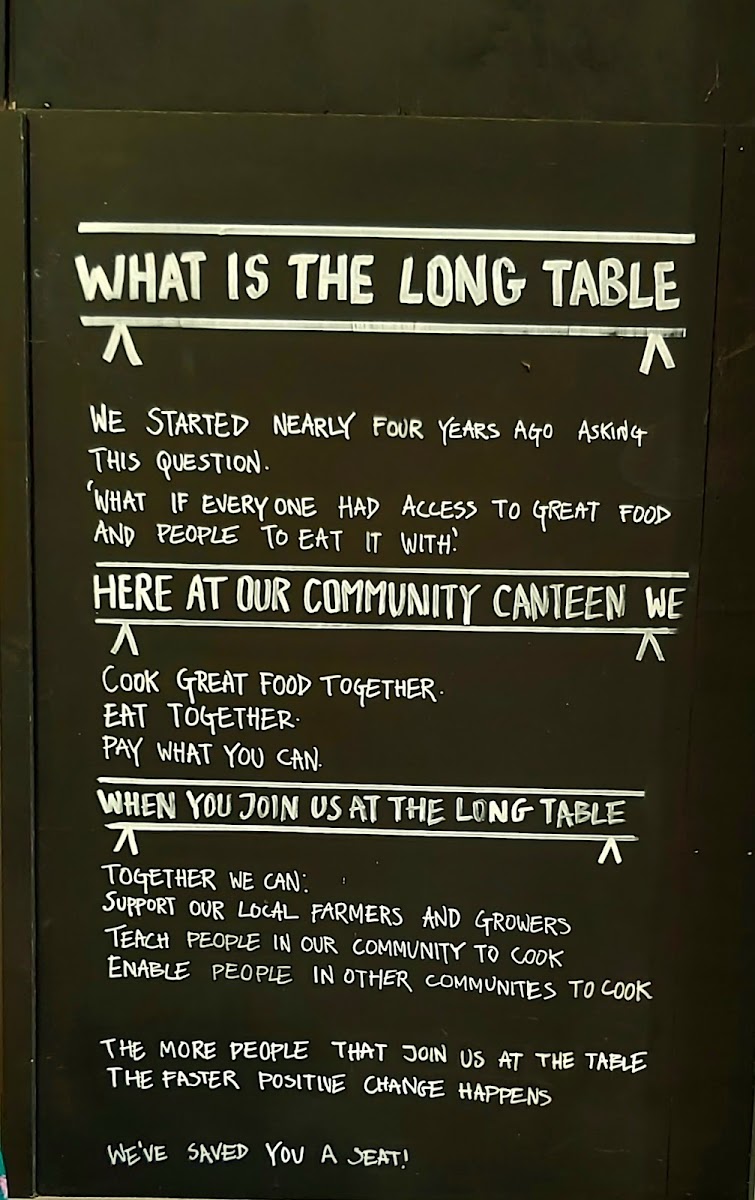 WHAT IS THE LONG TABLE
WE STARTED NEARLY FOUR YEARS AGO ASKING
THIS QUESTION.
'WHAT IF EVERYONE HAD ACCESS TO GREAT FOOD
AND PEOPLE TO EAT IT WITH.'
HERE AT OUR COMMUNITY CANTEEN WE
COOK GREAT FOOD TOGETHER.
EAT TOGETHER.
PAY WHAT YOU CAN.
WHEN YOU JOIN US AT THE LONG TABLE
TOGETHER WE CAN:
SUPPORT OUR LOCAL FARMERS AND GROWERS
TEACH PEOPLE IN OUR COMMUNITY TO COOK
ENABLE PEOPLE IN OTHER COMMUNITES TO COOK
THE MORE PEOPLE THAT JOIN US AT THE TABLE
THE FASTER POSITIVE CHANGE HAPPENS
WE'VE SAVED YOU A SEAT!